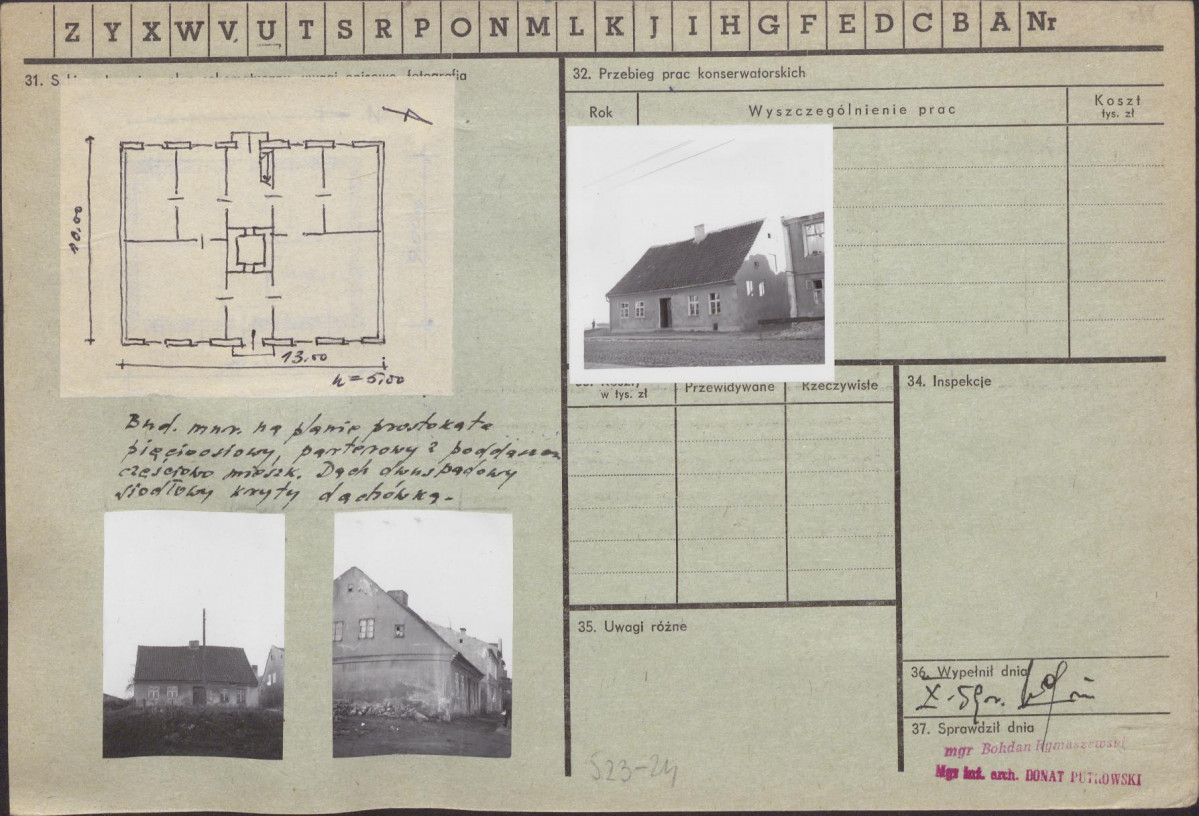 Z Y X W V U T S R P O N M L K J I H G F E D C B A Nr
31.
10.00
13.00
h = 5,00
Bud. mur. na planie prostokąta
pięcioosiowy, parterowy z poddaszem
częściowo mieszk. Dach dwuspadowy
siodłowy kryty dachówką.
32. Przebieg prac konserwatorskich
Rok Wyszczególnienie prac Koszt
tys. zł
Przewidywane Rzeczywiste
w tys. zł
34. Inspekcje
35. Uwagi różne
523-24
36. Wypełnił dnia
X. 59 r.
37. Sprawdził dnia
mgr Bohdan Rymaszewski
Mgr inż. arch. DONAT PUTKOWSKI